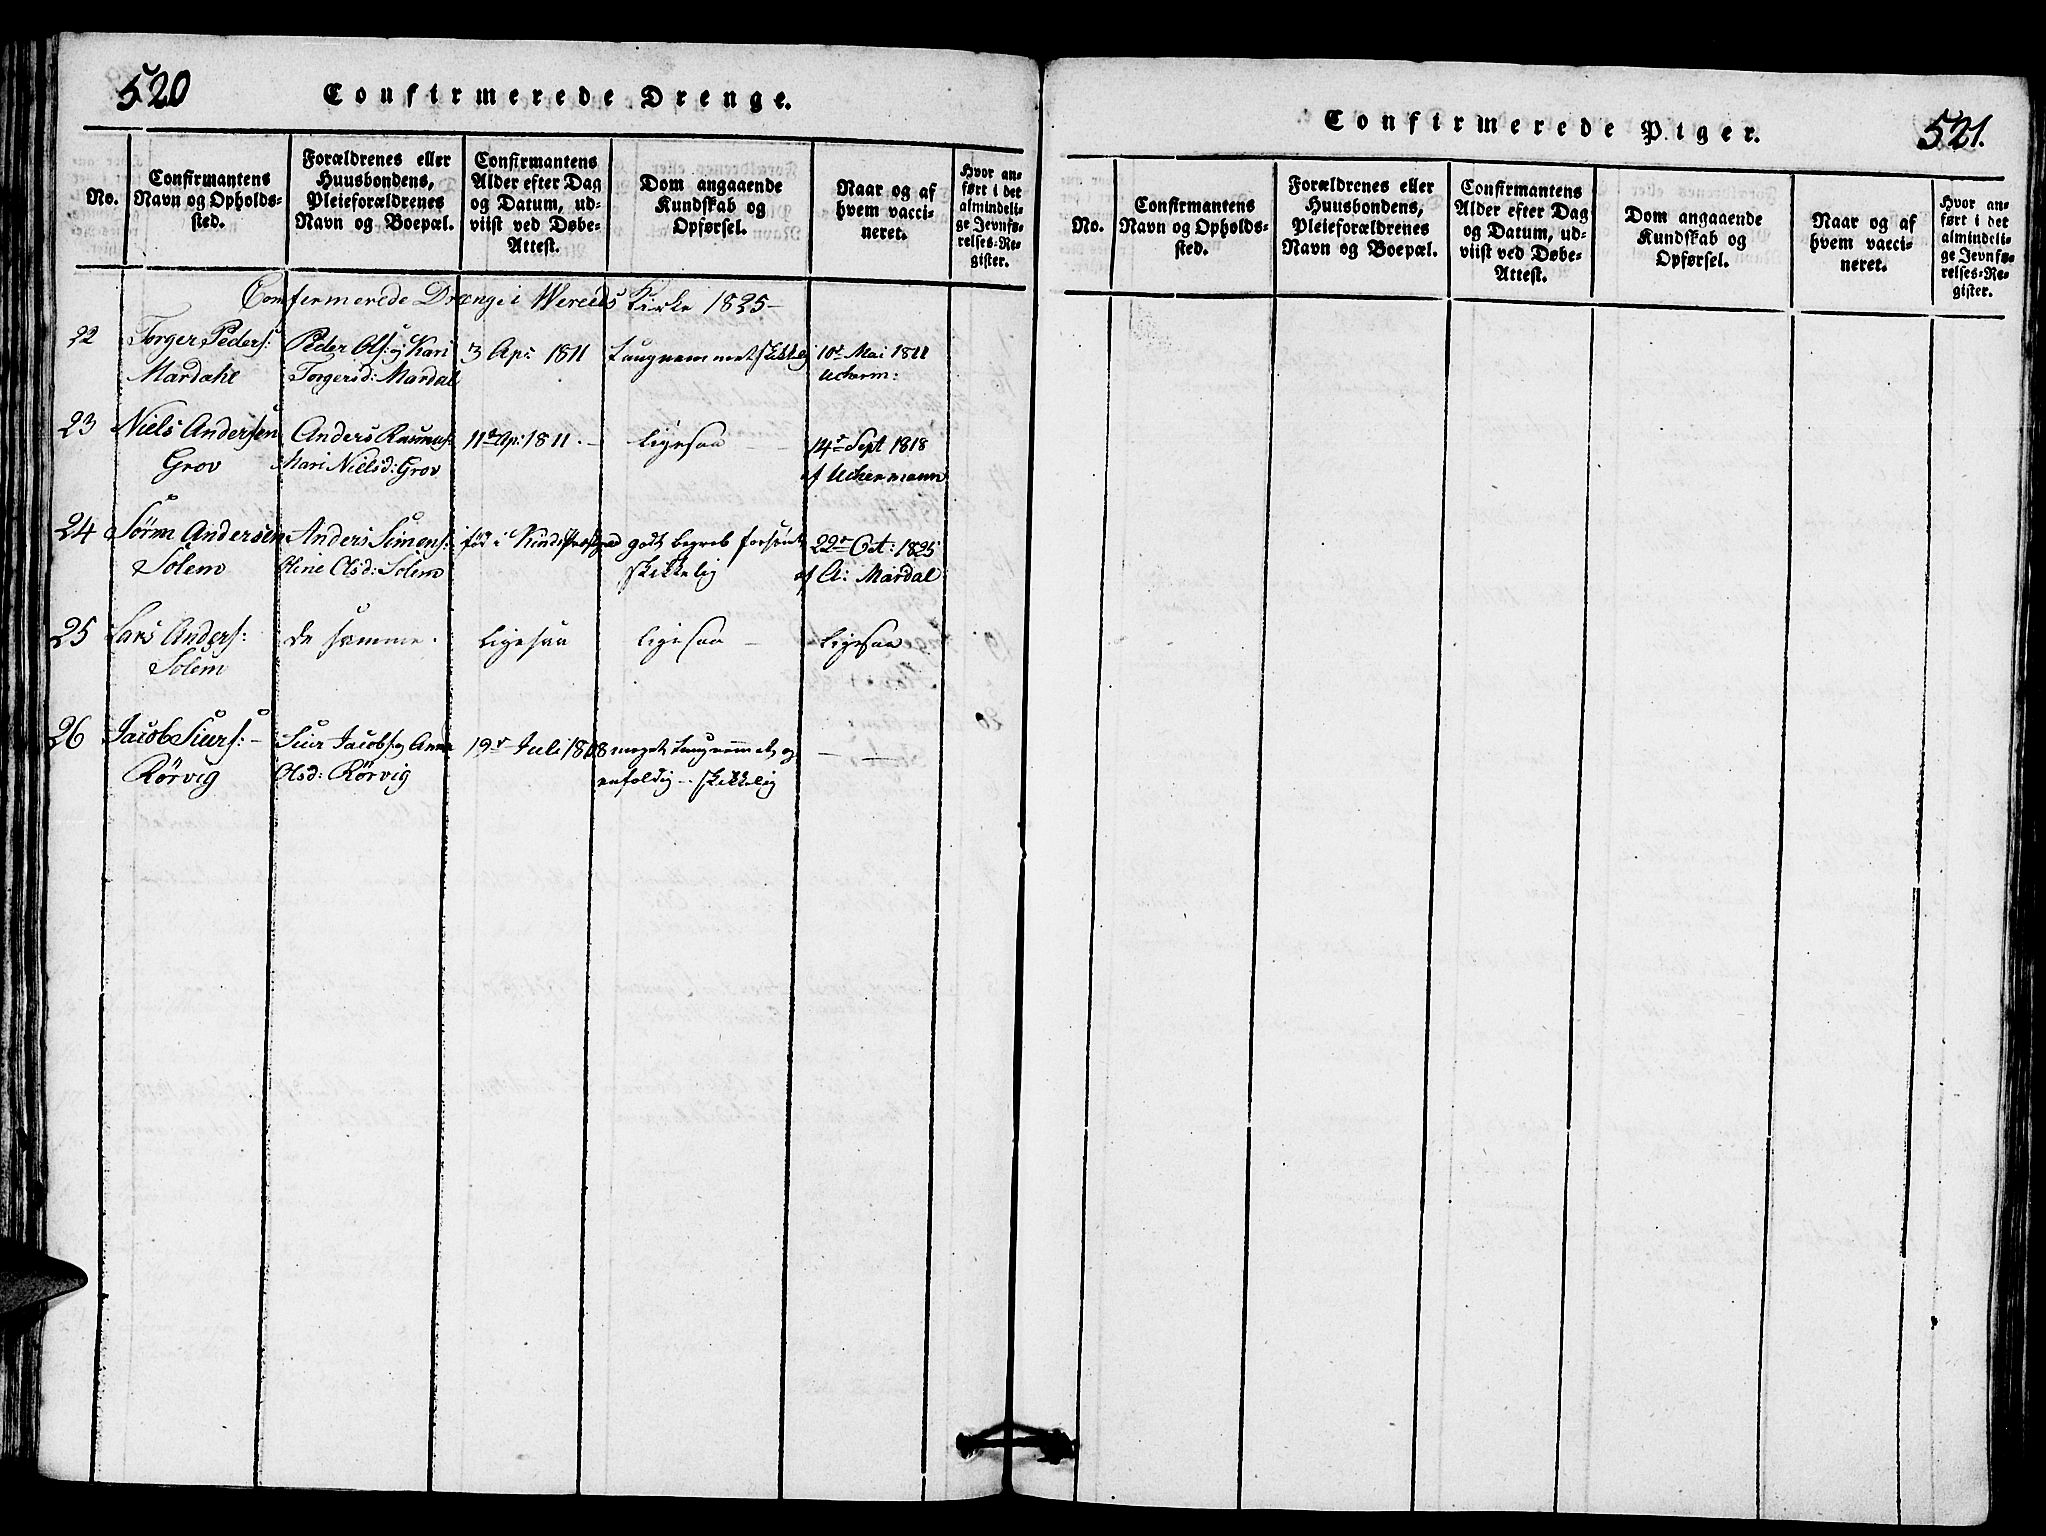 520
Confirmerede Drenge.
No.
Confirmantens
Navn og Opholds-
sted.
Forældrenes eller
Huusbondens,
Pleieforældrenes
Navn og Boepæl.
Confirmantens
Alder efter Dag
og Datum, ud-
viist ved Døbe-
Attest.
Dom angaaende
Kundskab og
Opførsel.
Naar og af
hvem vacci-
neret.
Hvor an-
ført i det
almindeli-
ge Jevnfø-
relses-Re-
gister.
Confirmerede Drenge i Kirke 1825
22
Torger Peders:
Mardahl
Peder Ols: og Kari
Torgersd: Mardal
3 Apr: 1811
tungnemmet skikkelig
10de Mai 1811
Ucherm:
23
Niels Andersen
Grov
Anders Rasmus:
Mari Nielsd: Grov
11te Ap: 1811.
ligesaa
14de Sept 1818
af Uchermann
24
Sören Andersen
Solem
Anders Simons:
Oline Olsd: Solem
fød i
godt begreb forsömt
skikkelig
22de Oct: 1825
af A: Mardal
25
Lars Anders:
Solem
de samme.
ligesaa
ligesaa
ligesaa
26
Jacob Siurs:
Rörvig
Siur Jacobs: og Anna
Olsd: Rörvig
19de Juli 1808
meget tungnemmet og
enfoldig - skikkelig
Confirmerede Piger.
521.
No.
Confirmantens
Navn og Opholds-
sted.
Forældrenes eller
Huusbondens,
Pleieforældrenes
Navn og Boepæl.
Confirmantens
Alder efter Dag
og Datum, ud-
viist ved Døbe-
Attest.
Dom angaaende
Kundskab og
Opførsel.
Naar og af
hvem vacci-
neret.
Hvor an-
ført i det
almindeli-
ge Jevnfø-
relses-Re-
gister.